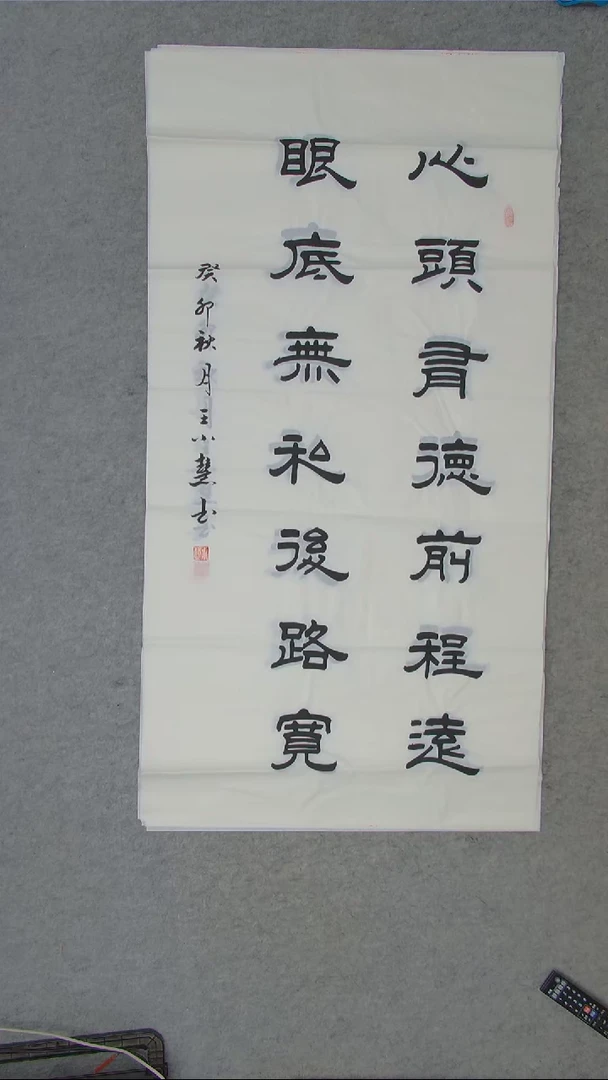 心頭有德前程遠
眼底無私後路寬
癸卯秋月王小慧书